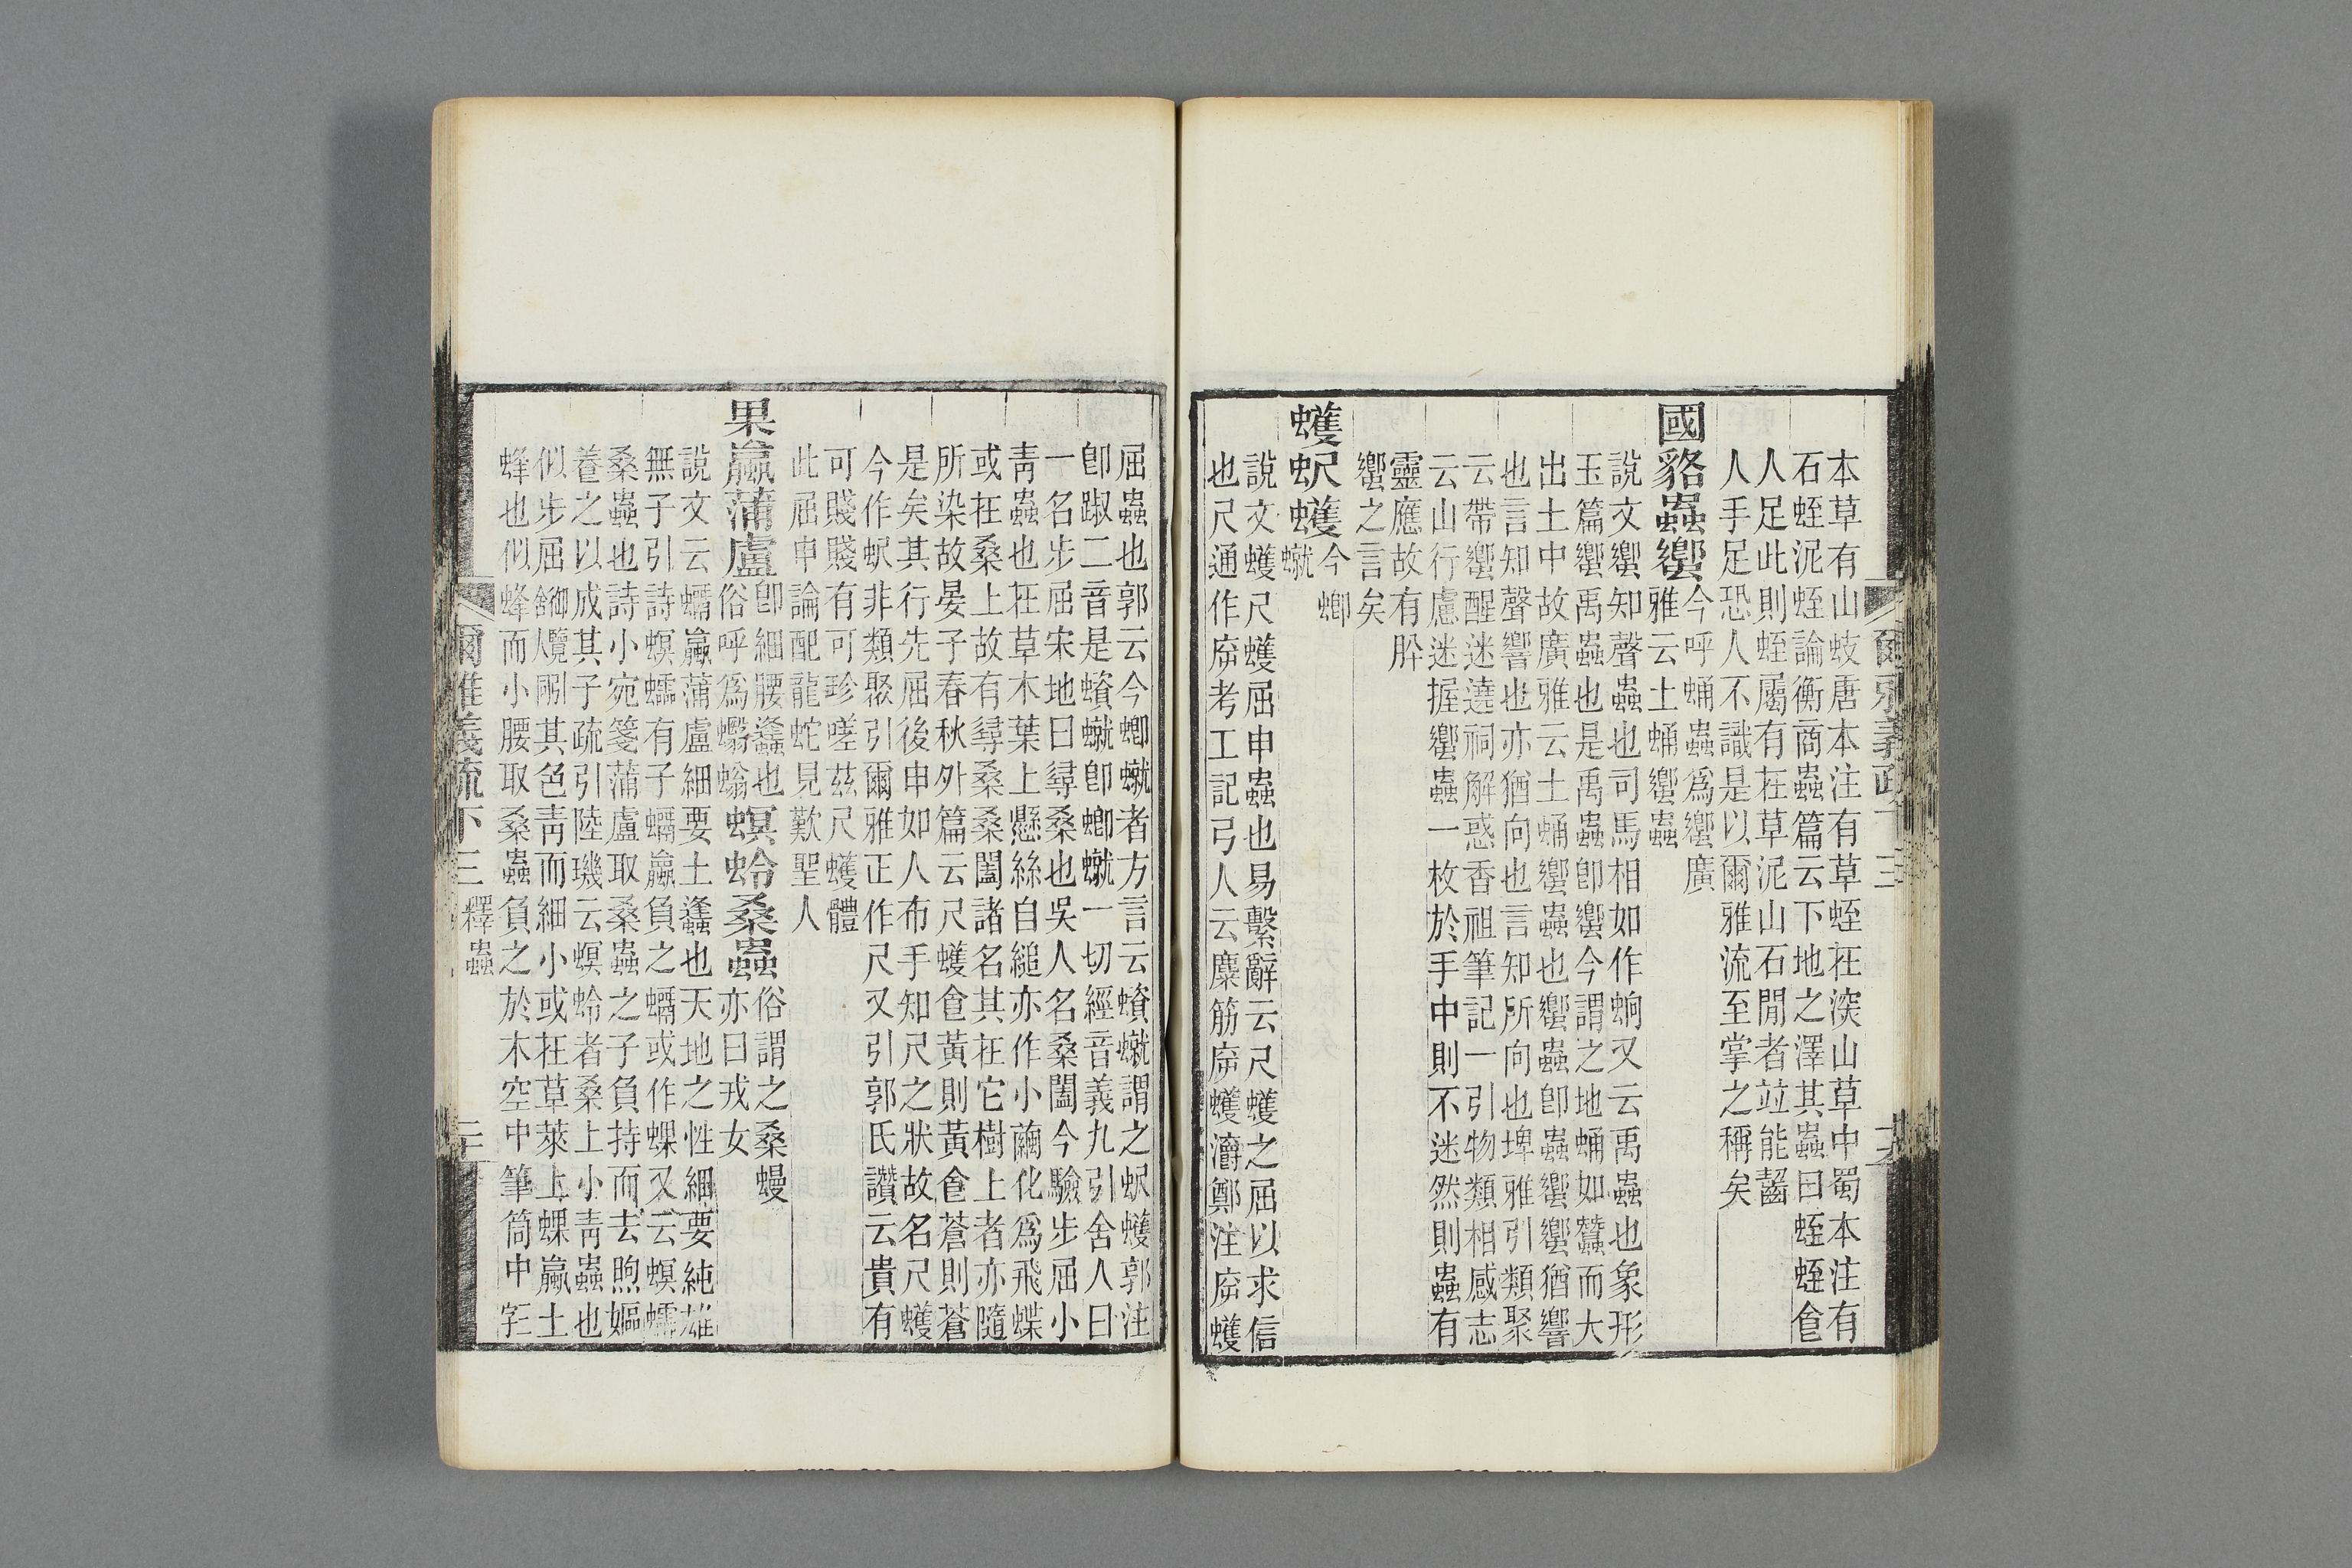 本草有山蛂唐本注有草蛭在深山草中蜀本注有
石蛭泥蛭論衡商蟲篇云下地之澤其蟲曰蛭蛭食
人足此則蛭屬有在草泥山石閒者竝能齧
人手足恐人不識是以爾雅流至掌之稱矣
國貉蟲蠁今呼蛹蟲爲蠁廣
雅云土蛹蠁蟲
說文蠁知聲蟲也司馬相如作蚼又云禹蟲也象形
玉篇蠁禹蟲也是禹蟲卽蠁今謂之地蛹如蠶而大
出土中故廣雅云土蛹蠁蟲也蠁蟲卽蟲蠁蠁猶響
也言知聲響也亦猶向也言知所向也埤雅引類聚
云帶蠁醒迷遶祠解惑香祖筆記一引物類相感志
云山行慮迷握蠁蟲一枚於手中則不迷然則蟲有
靈應故有肸
蠁之言矣
蠖蚇蠖今蝍
蝛
說文蠖尺蠖屈申蟲也易繫辭云尺蠖之屈以求信
也尺通作㡿考工記弓人云麋筋㡿蠖灂鄭注㡿蠖
屈蟲也郭云今蝍蝛者方言云蠀蝛謂之蚇蠖郭注
卽踧二音是蠀蝛卽蝍蝛一切經音義九引舍人曰
一名步屈宋地曰尋桑也吳人名桑闔今驗步屈小
靑蟲也在草木葉上懸絲自縋亦作小繭化爲飛蝶
或在桑上故有尋桑桑闔諸名其在它樹上者亦隨
所染故晏子春秋外篇云尺蠖食黃則黃食蒼則蒼
是矣其行先屈後申如人布手知尺之狀故名尺蠖
今作蚇非類聚引爾雅正作尺又引郭氏讚云貴有
可賤賤有可珍嗟茲尺蠖體
此屈申論配龍蛇見歎聖人
果蠃蒲盧卽細腰蠭也
俗呼爲蠮螉螟蛉桑蟲俗謂之桑蟃
亦曰戎女
說文云蠣蠃蒲盧細要土蠭也天地之性細要純雄
無子引詩螟蠕有子蠣蠃負之蠣或作蜾又云螟蠕
桑蟲也詩小宛箋蒲盧取桑蟲之子負持而去煦嫗
養之以成其子疏引陸璣云螟蛉者桑上小靑蟲也
似步屈舍御覽引其色靑而細小或在草萊上蜾蠃土
蜂也似蜂而小腰取桑蟲負之於木空中筆筒中
爾雅義疏下三 釋蟲 二十